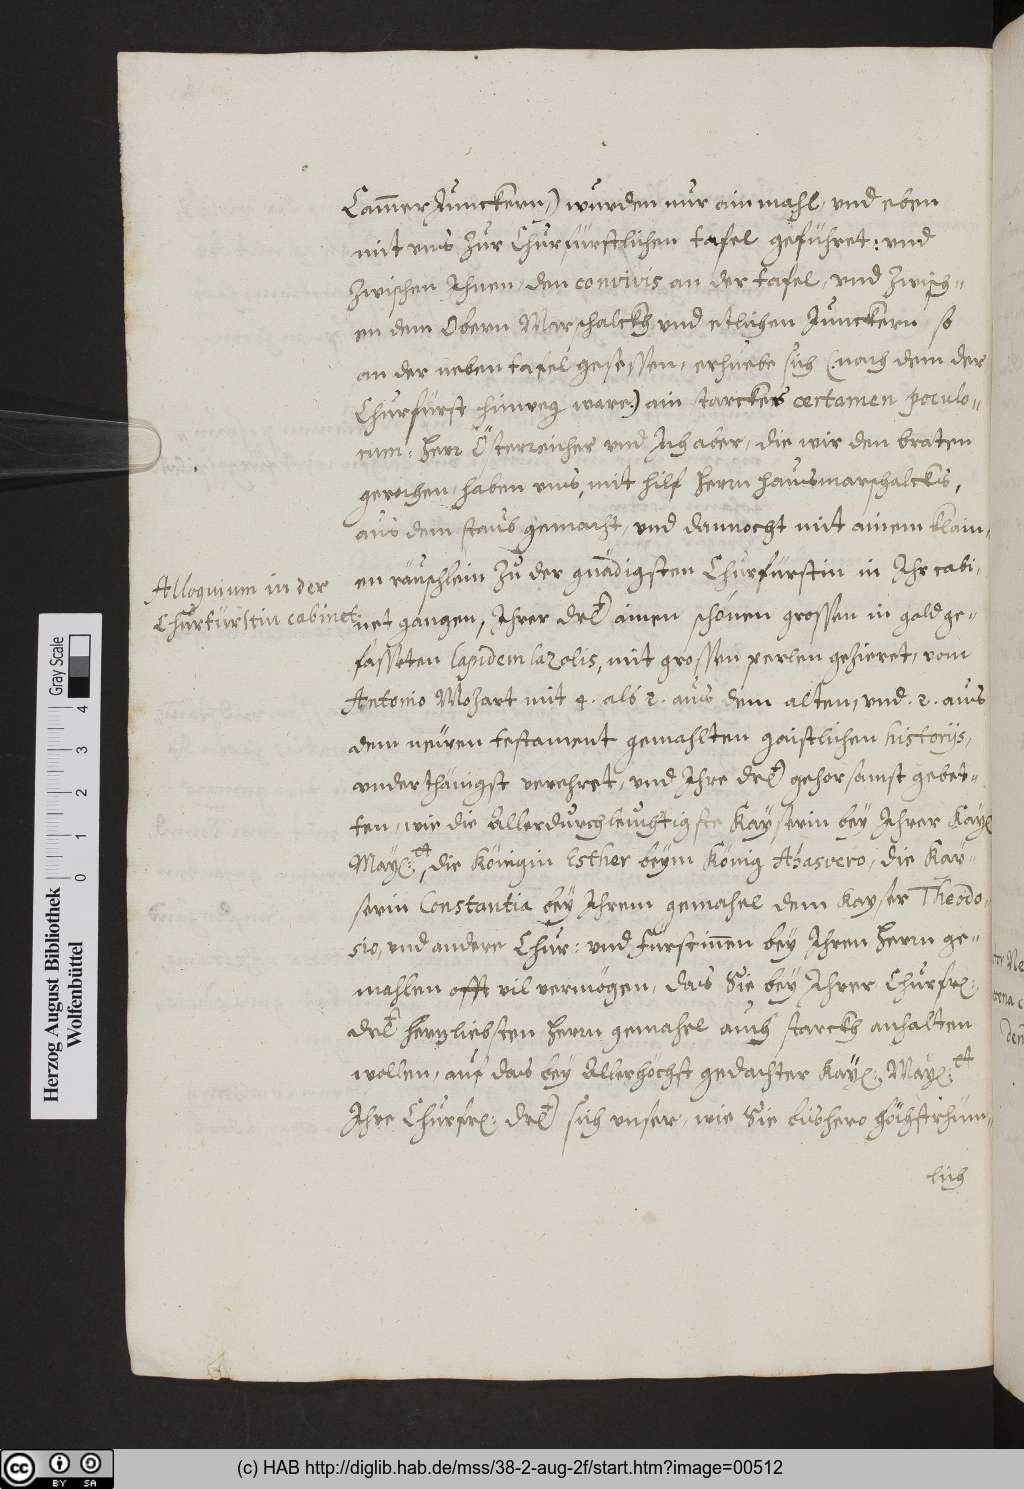 Cam̅erJunckern,) wurden nur ain mahl, vnd eben
mit vns zur Churfürstlichen tafel geführet: vnd
zwischen Jhnen, den convivis an der tafel, vnd zwisch-
en dem Obern Marschalckh vnd etlichen Junckern so
an der neben tafel gesessen, erhuebe sich (nach dem der
Churfürst hinweg ware.) ain starckes certamen poculo-
rum: Herr Österreicher vnd Jch aber, die wir den braten
gerochen, haben vns, mit hilf Herrn Hausmarschalcks,
aus dem staub gemacht, vnd dannocht mit ainem klain-
en räuschlein zu der gnädigsten Churfürstin in Jhr cabi-
Alloquium in der
Churfürstin cabinet.
net gangen, Jhrer Drlt ainen schönen grossen in gold ge-
fasseten lapidem lazolis, mit grossen perlen gezieret, vom
Antonio Mozart mit 4. als 2. aus dem alten, vnd 2. aus
dem neuen testament gemahlten gaistlichen historijs,
vnderthänigst verehret, vnd Jhre Drlt gehorsamst gebet-
ten, wie die Allerdurchleuchtigste Kayserin bey Jhrer Kay:
May: tt, die Königin Esther beym König Ahasvero, die Kay-
serin Constantia bey Jhrem gemahel dem Kayser Theodo-
sio, vnd andere Chur: vnd Fürstin̅en bey Jhren Herrn ge-
mahlen offt vil vermögen, das Sie bey Jhrer Churfr:
Drlt herzliebsten Herrn gemahel auch starckh anhalten
wollen, auf das bey Allerhöchst gedachter Kay: May: tt
Jhre Churfr: Drlt sich vnser, wie Sie bishero höchstrhüm-
lich
Herzog August Bibliothek
Wolfenbüttel
Gray Scale
0 1 2 3 4
cc BY SA
(c) HAB http://diglib.hab.de/mss/38-2-aug-2f/start.htm?image=00512